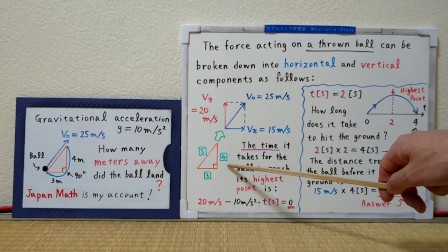 Gravitational acceleration
g = 10 m/s²
V₀ = 25 m/s
How many
meters away
did the ball land
?
Ball
4m
3m
90°
Japan Math is my account!
The force acting on a thrown ball can be
broken down into horizontal and vertical
components as follows:
Vy
= 20
m/s
V₀ = 25 m/s
Vx = 15 m/s
5
4
3
The time it
takes for the
ball
its highest
point is:
20 m/s - 10 m/s² · t[s] = 0
t[s] = 2 [s]
Highest
Point
0 2 4
How long
does it take
to hit the ground?
2[s] x 2 = 4[s]
The distance
the ball before it
ground is:
15 m/s x 4[s] =
Answer